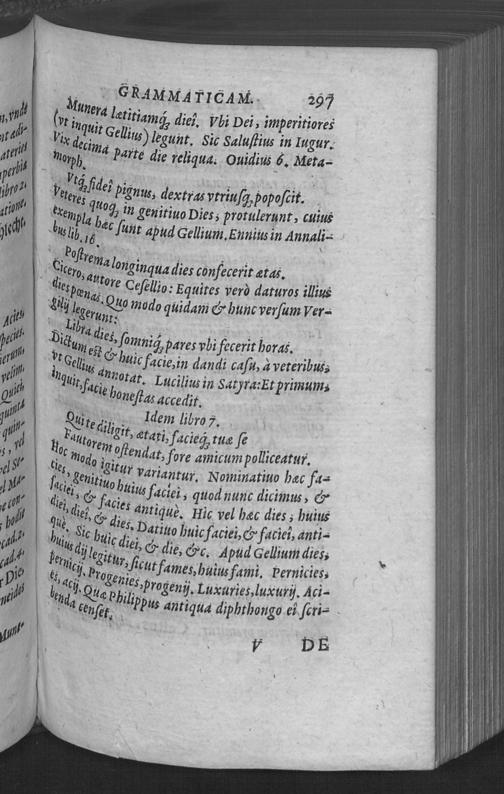 n, vnde
nt ædi-
ateries
perbia
libro 2.
atione,
Acies,
species.
ierum,
velim,
Quieti
quinta
quin-
s, vel
vel Se-
el Ma-
e con-
s hodie
cad. 2.
cad. 4.
r Dic,
Munt-
GRAMMATICAM. 297
Munera lætitiamq́; dieî. Vbi Dei, imperitiores
(vt inquit Gellius) legunt. Sic Salustius in Iugur.
Vix decima parte die reliqua. Ouidius 6. Meta-
morph.
Vtq́; fideî pignus, dextras vtriusq; poposcit.
Veteres quoq; in genitiuo Dies, protulerunt, cuius
exempla hæc sunt apud Gellium. Ennius in Annali-
bus lib. 16.
Postrema longinqua dies confecerit ætas.
Cicero, autore Cesellio: Equites verò daturos illius
dies pœnas. Quo modo quidam & hunc versum Ver-
gilij legerunt:
Libra dies, somniq́; pares vbi fecerit horas.
Dictum est & huic facie, in dandi casu, à veteribus,
vt Gellius annotat. Lucilius in Satyra: Et primum,
inquit, facie honestas accedit.
Idem libro 7.
Qui te diligit, ætati, facieq́; tuæ se
Fautorem ostendat, fore amicum polliceatur.
Hoc modo igitur variantur. Nominatiuo hæc fa-
cies, genitiuo huius faciei, quod nunc dicimus, &
faciei, & facies antiquè. Hic vel hæc dies, huius
diei, dieî, & dies. Datiuo huic faciei, & facieî, anti-
què. Sic huic diei, & die, &c. Apud Gellium dies,
huius dij legitur, sicut fames, huius fami. Pernicies,
pernicij. Progenies, progenij. Luxuries, luxurij. Aci-
es, acij. Quæ Philippus antiqua diphthongo eî scri-
benda censet.
V DE